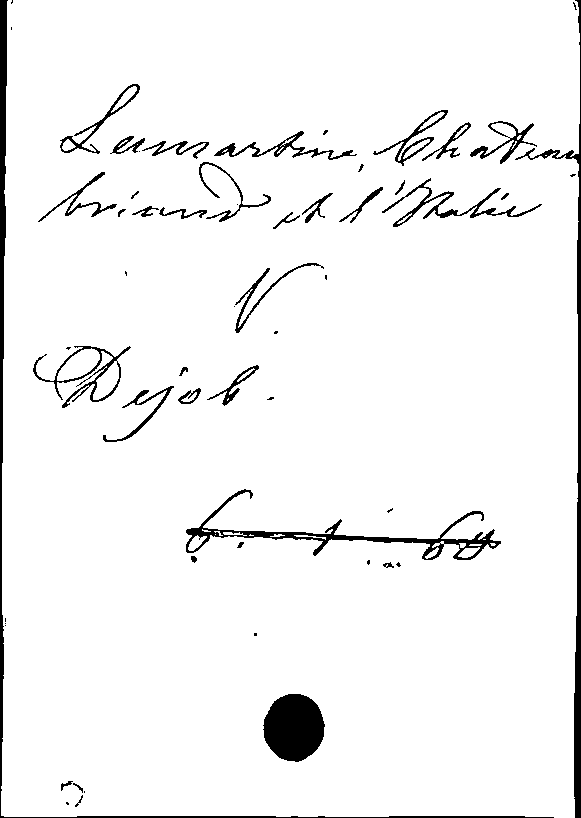 Lamartine, Chateau
briand et l'Italie
V.
Dejob.